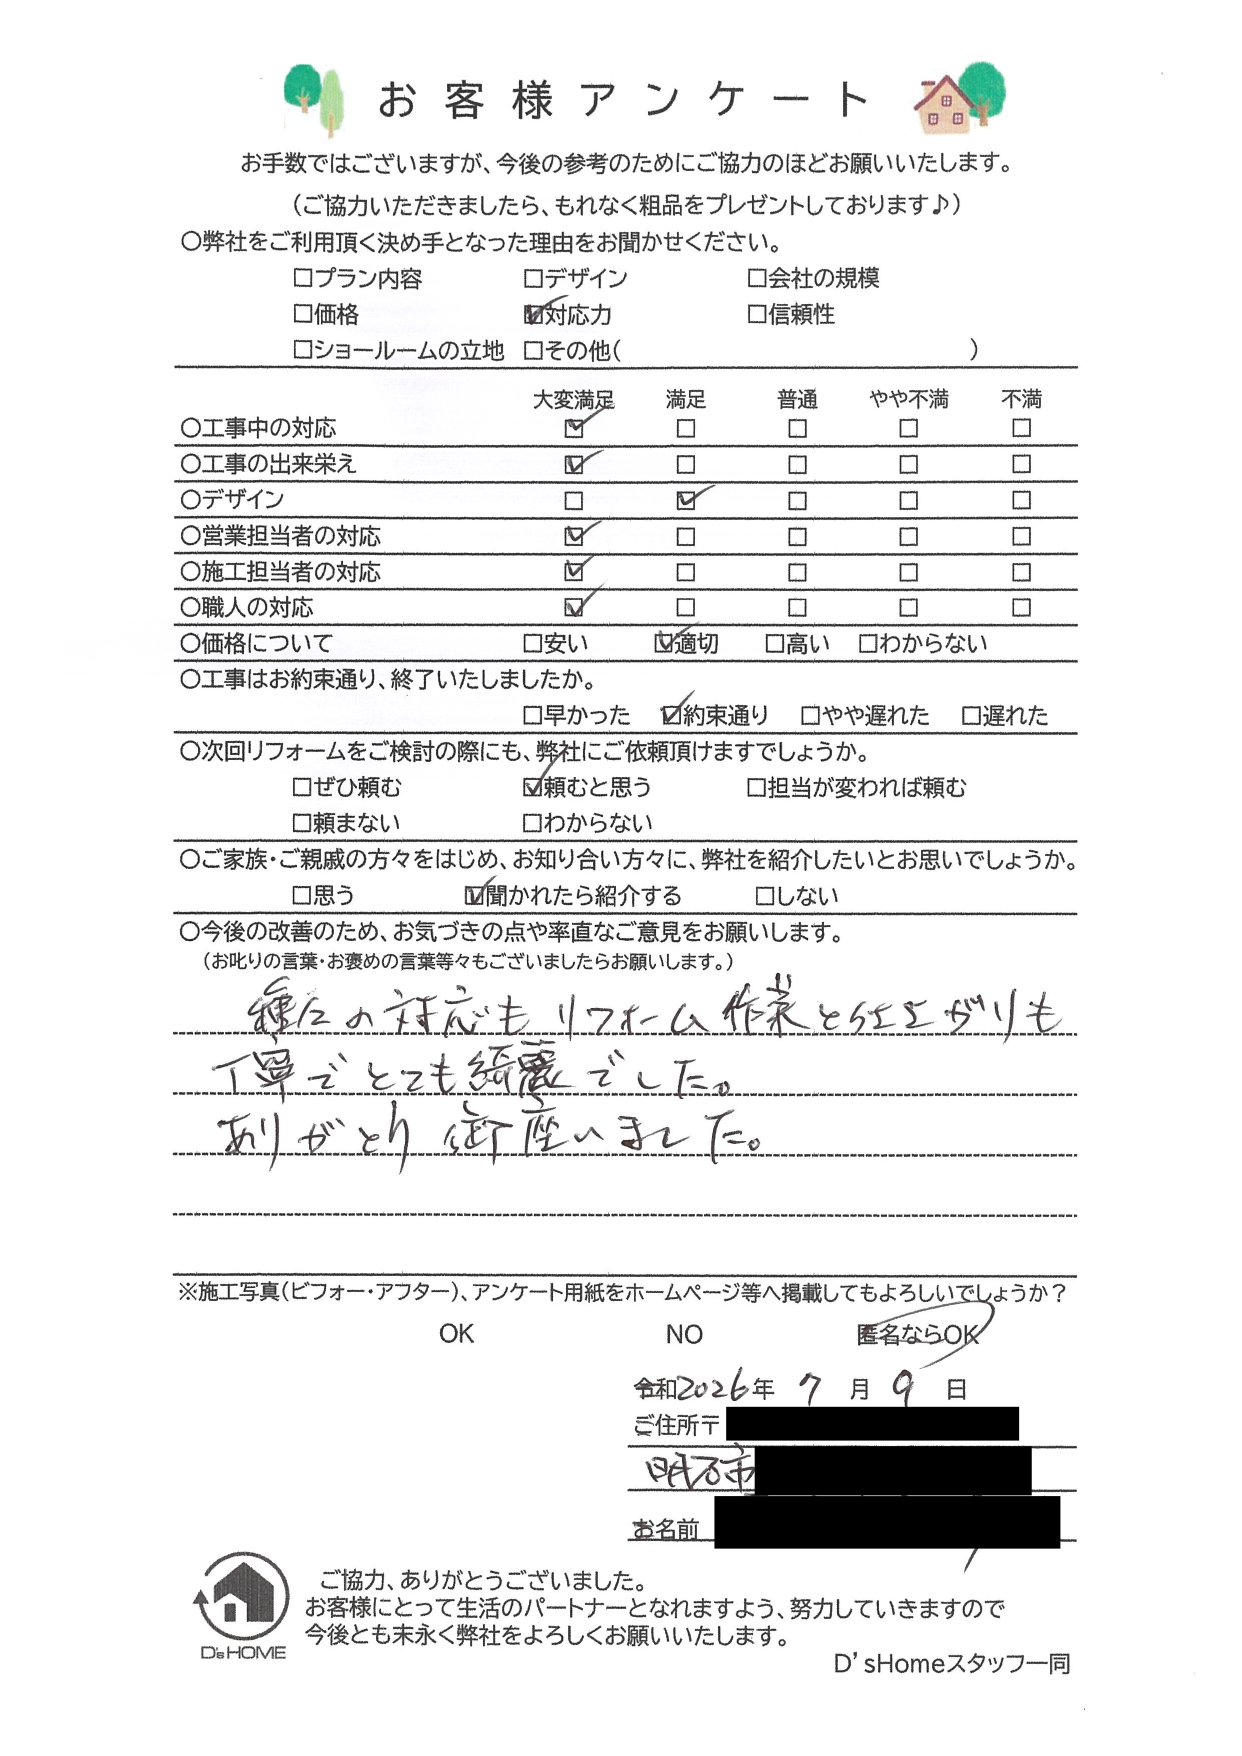 お客様アンケート
お手数ではございますが、今後の参考のためにご協力のほどお願いいたします。
（ご協力いただきましたら、もれなく粗品をプレゼントしております♪）
〇弊社をご利用頂く決め手となった理由をお聞かせください。
□プラン内容 □デザイン □会社の規模
□価格 ☑対応力 □信頼性
□ショールームの立地 □その他( )
大変満足 満足 普通 やや不満 不満
〇工事中の対応 ☑ □ □ □ □
〇工事の出来栄え ☑ □ □ □ □
〇デザイン □ ☑ □ □ □
〇営業担当者の対応 ☑ □ □ □ □
〇施工担当者の対応 ☑ □ □ □ □
〇職人の対応 ☑ □ □ □ □
〇価格について □安い ☑適切 □高い □わからない
〇工事はお約束通り、終了いたしましたか。
□早かった ☑約束通り □やや遅れた □遅れた
〇次回リフォームをご検討の際にも、弊社にご依頼頂けますでしょうか。
□ぜひ頼む ☑頼むと思う □担当が変われば頼む
□頼まない □わからない
〇ご家族・ご親戚の方々をはじめ、お知り合い方々に、弊社を紹介したいとお思いでしょうか。
□思う ☑聞かれたら紹介する □しない
〇今後の改善のため、お気づきの点や率直なご意見をお願いします。
（お叱りの言葉・お褒めの言葉等々もございましたらお願いします。）
種々の対応もリフォーム作業と仕上がりも
丁寧でとても綺麗でした。
ありがとう御座いました。
※施工写真（ビフォー・アフター）、アンケート用紙をホームページ等へ掲載してもよろしいでしょうか？
OK NO 匿名ならOK
令和2026年 7 月 9 日
ご住所〒
明石市
お名前
ご協力、ありがとうございました。
お客様にとって生活のパートナーとなれますよう、努力していきますので
今後とも末永く弊社をよろしくお願いいたします。
D's HOME
D'sHomeスタッフ一同